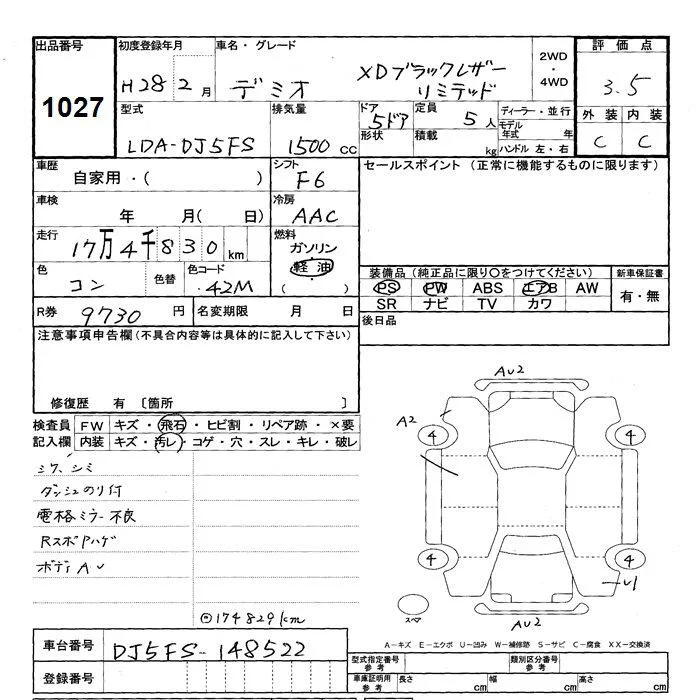 出品番号 初度登録年月 車名・グレード 2WD・4WD 評価点
1027 H28 2月 デミオ XDブラックレザーリミテッド 3.5
型式 排気量 ドア 定員 ディーラー・並行 外装 内装
LDA-DJ5FS 1500cc 5ドア 5人 モデル年式 年 C C
形状 積載 kg ハンドル 左・右
車歴 シフト セールスポイント (正常に機能するものに限ります)
自家用・( ) F6
車検 冷房
年 月( 日) AAC
走行 燃料
17万4千830km ガソリン
軽油
( )
色 色替 色コード
コン 42M
装備品 (純正品に限り○をつけてください) 新車保証書
PS PW ABS エアB AW 有・無
SR ナビ TV カワ
R券 9730円 名変期限 月 日 後日品
注意事項申告欄(不具合内容等は具体的に記入して下さい)
修復歴 有 〔箇所 〕
検査員 FW キズ・飛石・ヒビ割・リペア跡・×要
記入欄 内装 キズ・汚レ・コゲ・穴・スレ・キレ・破レ
シワ、シミ
ダッシュのり付
電格ミラー不良
Rスポハゲ
ボディAU
174829km
AU2
A2
4 4
4 4
U1
スペア
AU2
A-キズ E-エクボ U-凹み W-補修跡 S-サビ C-腐食 XX-交換済
車台番号 DJ5FS-148522
登録番号
型式指定番号 参考 類別区分番号 参考
車庫証明用 参考 長さ cm 幅 cm 高さ cm